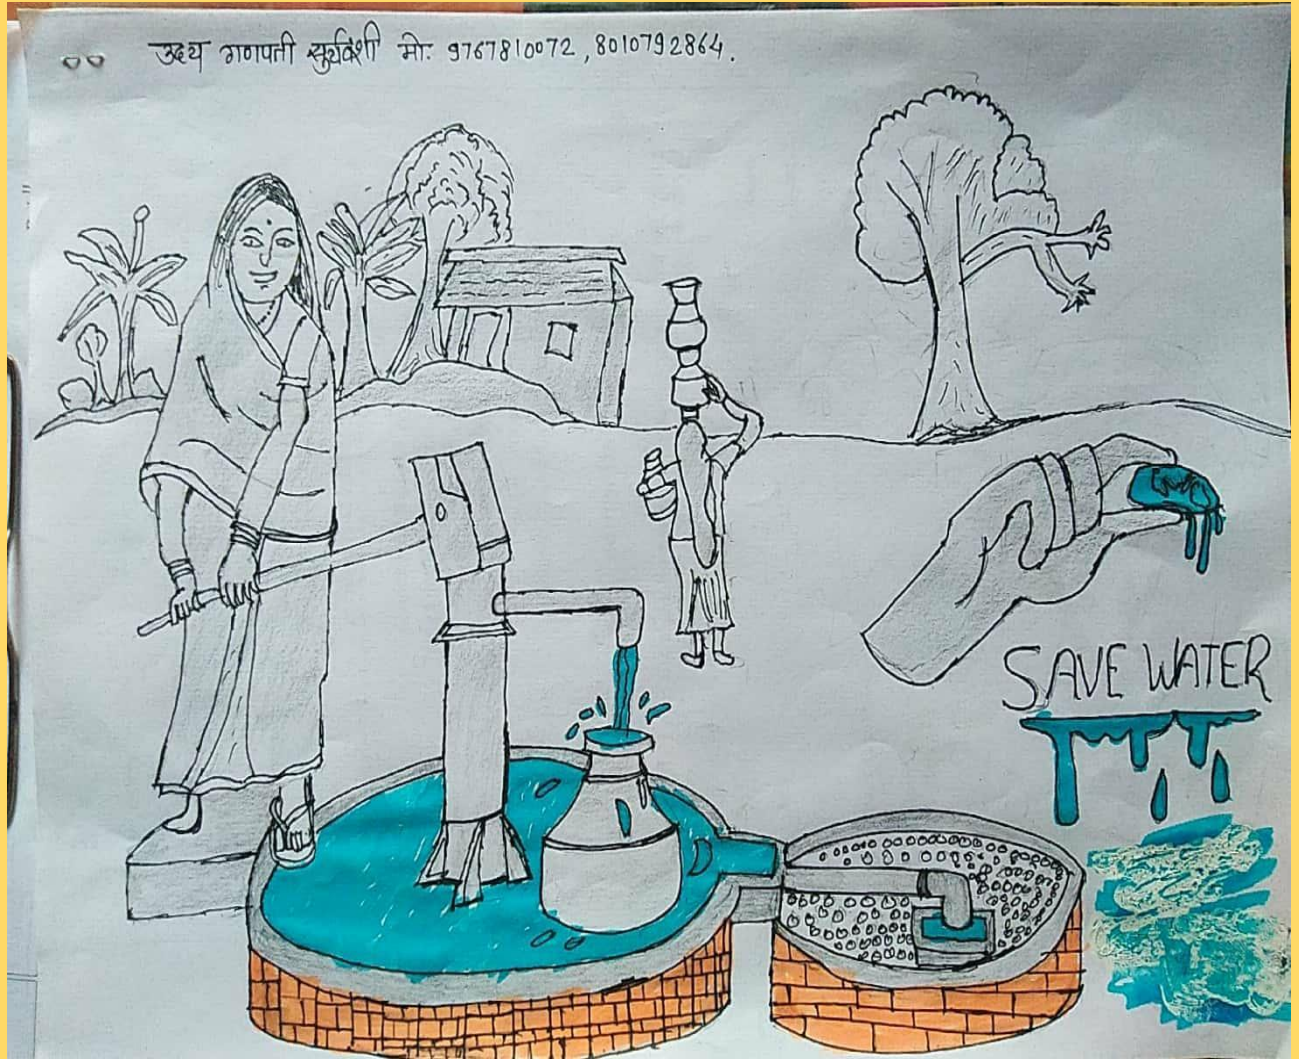 उदय गणपती सुर्यवंशी मो. 9767810072, 8010792864.
SAVE WATER